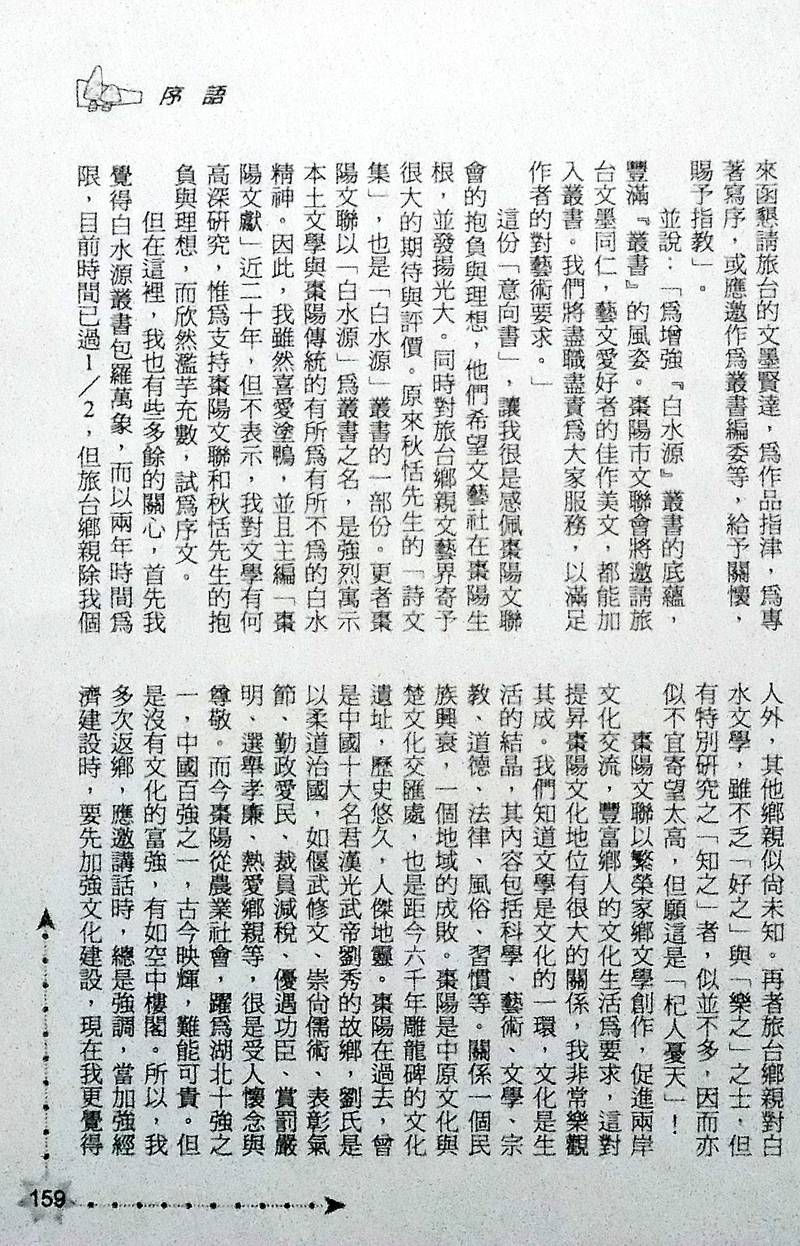 序語
來函懇請旅台的文墨賢達，爲作品指津，爲專
著寫序，或應邀作爲叢書編委等，給予關懷，
賜予指教」。
並說：「爲增強『白水源』叢書的底蘊，
豐滿『叢書』的風姿。棗陽市文聯會將邀請旅
台文墨同仁，藝文愛好者的佳作美文，都能加
入叢書。我們將盡職盡責爲大家服務，以滿足
作者的對藝術要求。」
這份「意向書」，讓我很是感佩棗陽文聯
會的抱負與理想，他們希望文藝社在棗陽生
根，並發揚光大。同時對旅台鄉親文藝界寄予
很大的期待與評價。原來秋恬先生的「詩文
集」，也是「白水源」叢書的一部份。更者棗
陽文聯以「白水源」爲叢書之名，是強烈寓示
本土文學與棗陽傳統的有所爲有所不爲的白水
精神。因此，我雖然喜愛塗鴨，並且主編「棗
陽文獻」近二十年，但不表示，我對文學有何
高深研究，惟爲支持棗陽文聯和秋恬先生的抱
負與理想，而欣然濫芋充數，試爲序文。
但在這裡，我也有些多餘的關心，首先我
覺得白水源叢書包羅萬象，而以兩年時間爲
限，目前時間已過1／2，但旅台鄉親除我個
人外，其他鄉親似尚未知。再者旅台鄉親對白
水文學，雖不乏「好之」與「樂之」之士，但
有特別研究之「知之」者，似並不多，因而亦
似不宜寄望太高，但願這是「杞人憂天」！
棗陽文聯以繁榮家鄉文學創作，促進兩岸
文化交流，豐富鄉人的文化生活爲要求，這對
提昇棗陽文化地位有很大的關係，我非常樂觀
其成。我們知道文學是文化的一環，文化是生
活的結晶，其內容包括科學、藝術、文學、宗
教、道德、法律、風俗、習慣等。關係一個民
族興衰，一個地域的成敗。棗陽是中原文化與
楚文化交匯處，也是距今六千年雕龍碑的文化
遺址，歷史悠久，人傑地靈。棗陽在過去，曾
是中國十大名君漢光武帝劉秀的故鄉，劉氏是
以柔道治國，如偃武修文、崇尚儒術、表彰氣
節、勤政愛民、裁員減稅、優遇功臣、賞罰嚴
明、選舉孝廉、熱愛鄉親等，很是受人懷念與
尊敬。而今棗陽從農業社會，躍爲湖北十強之
一，中國百強之一，古今映輝，難能可貴。但
是沒有文化的富強，有如空中樓閣。所以，我
多次返鄉，應邀講話時，總是強調，當加強經
濟建設時，要先加強文化建設，現在我更覺得
159